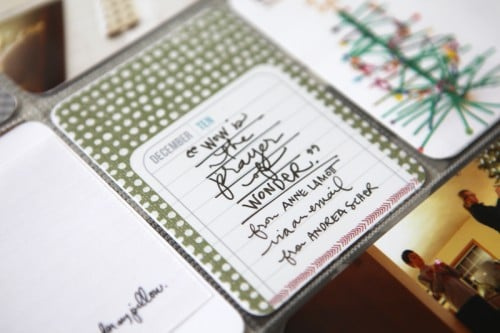 DECEMBER TEN
"WOW" is
The
prayer
of
WONDER."
from ANNE LAMOT
via an email
from ANDREA SCHER
my pillow.